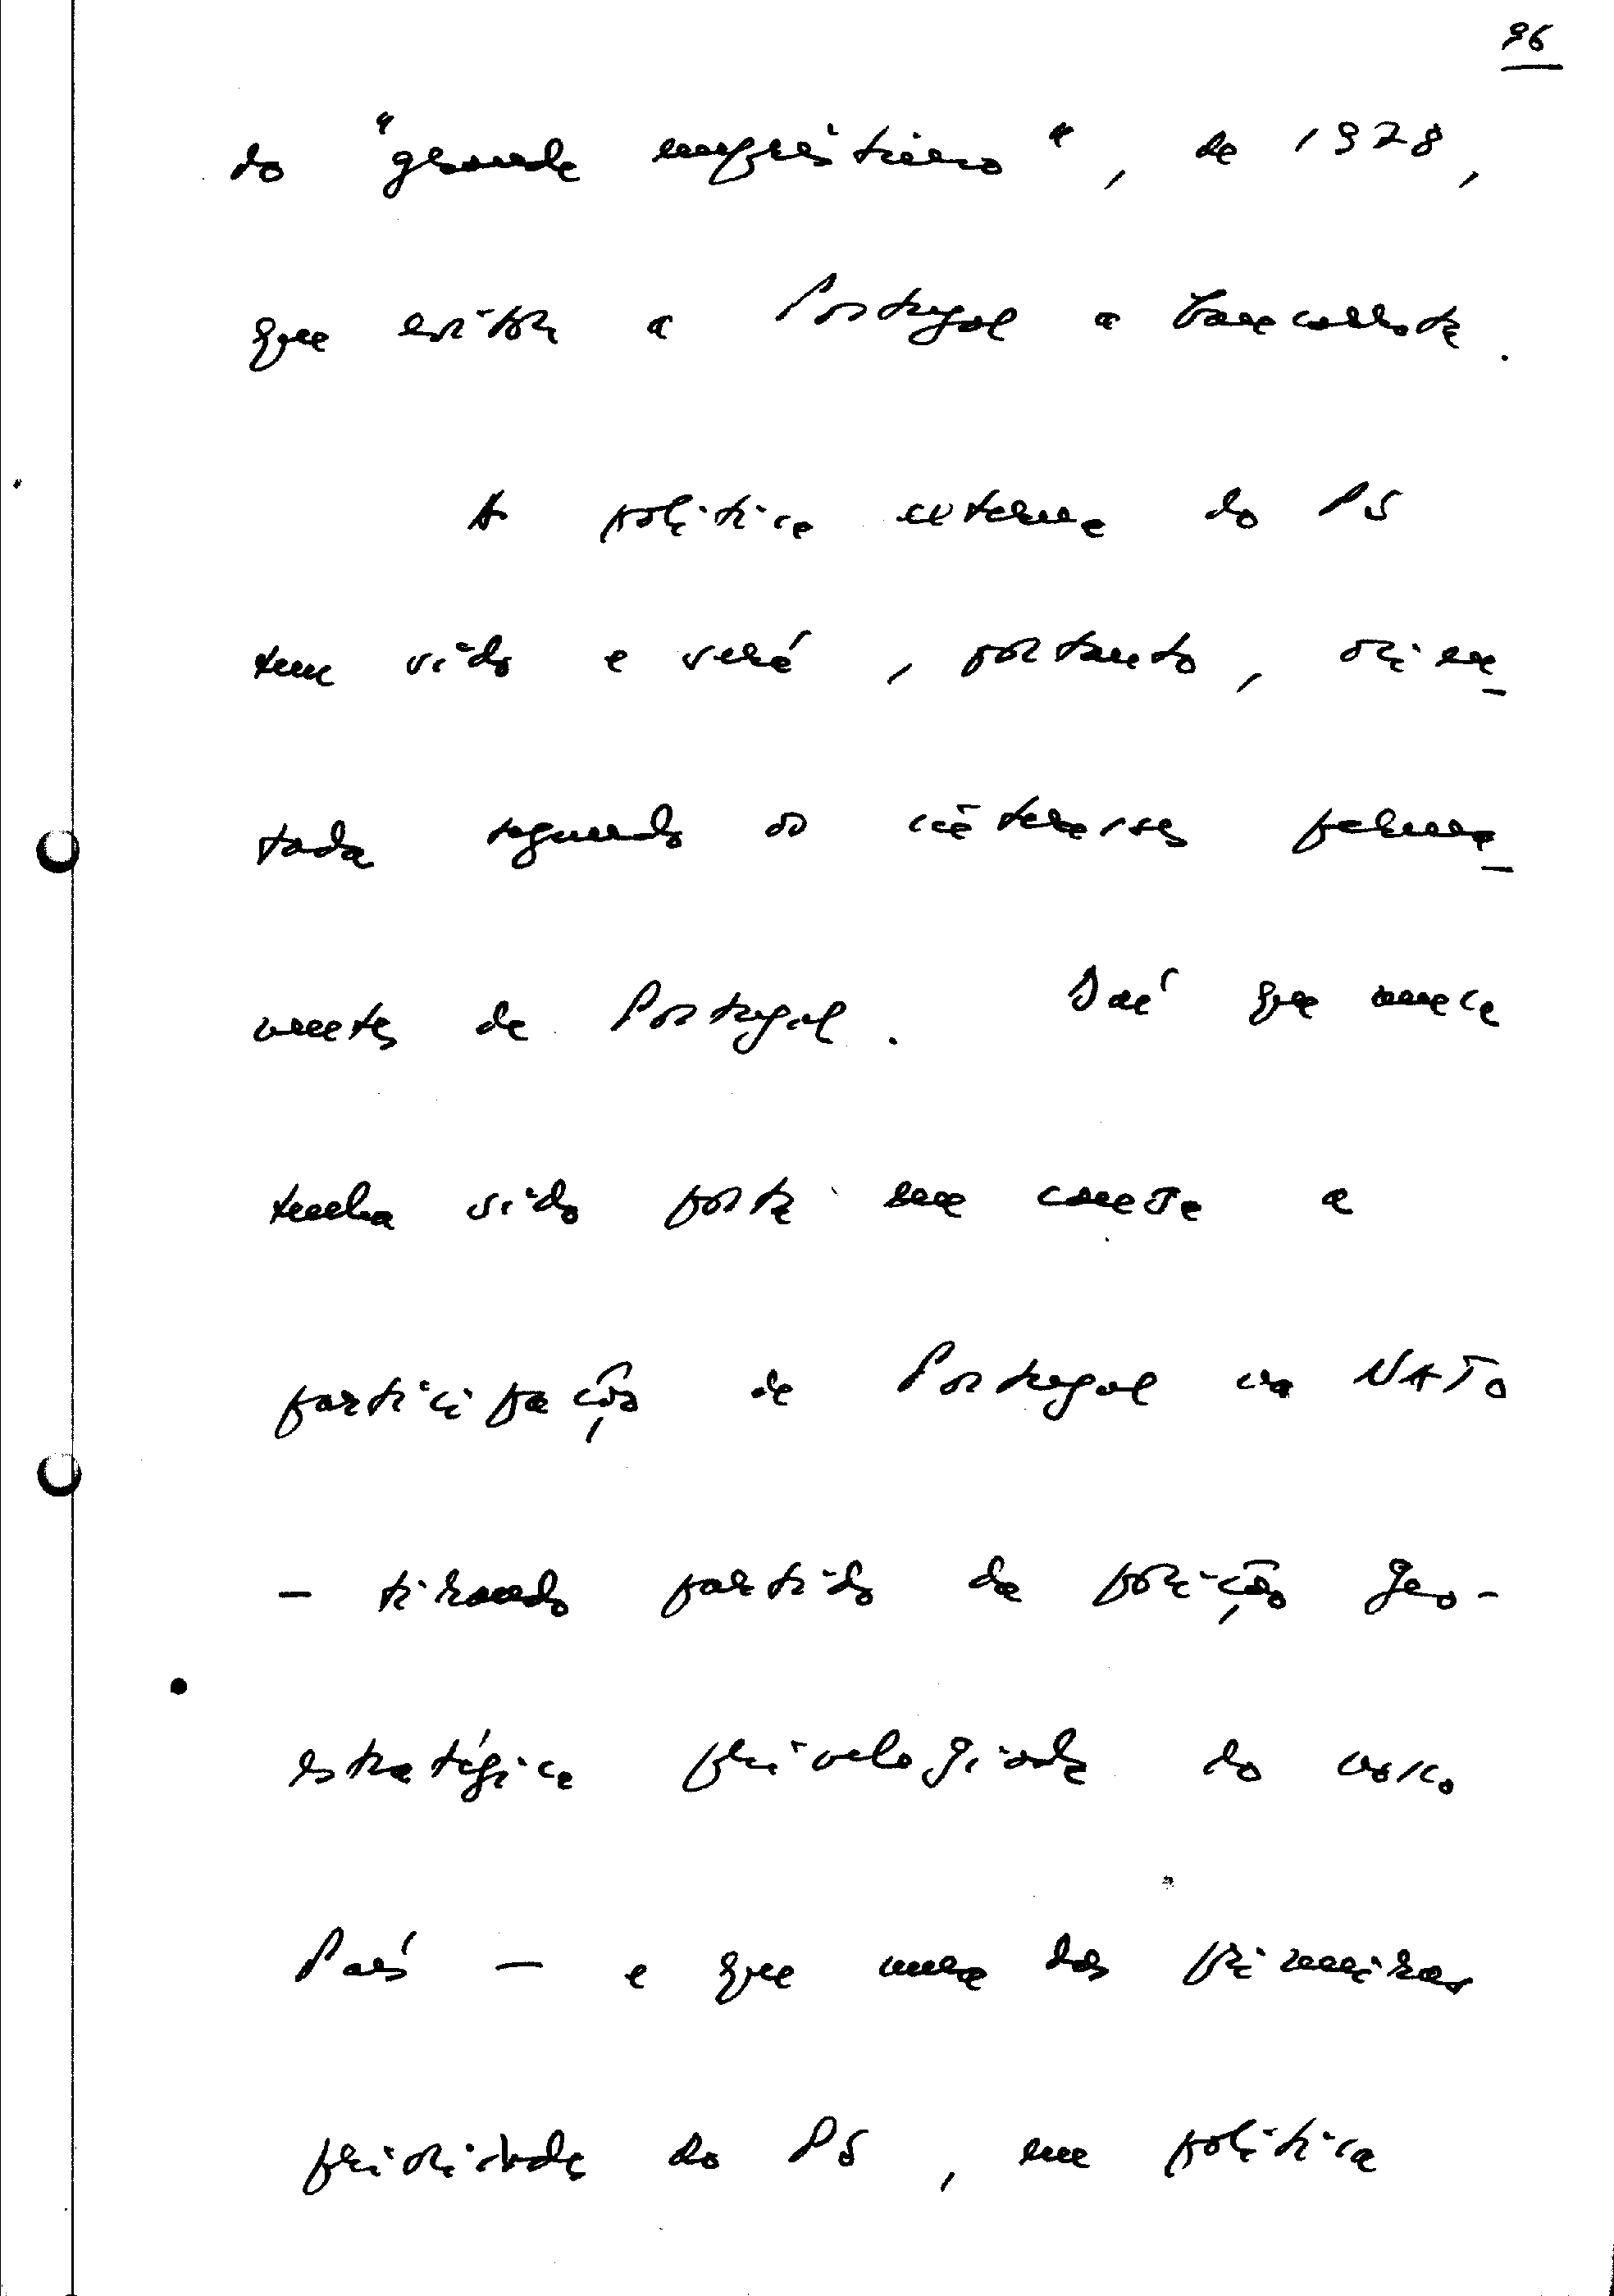 96
do "grande empréstimo", de 1978,
que evitou a Portugal a bancarrota.
A política externa do PS
tem sido e será, portanto, orien-
tada segundo os interesses perma-
nentes de Portugal. Daí que nunca
tenha sido posta em causa a
participação de Portugal na NATO
- tirando partido da posição geo-
estratégica privilegiada do nosso
País - e que uma das primeiras
prioridades do PS, em política